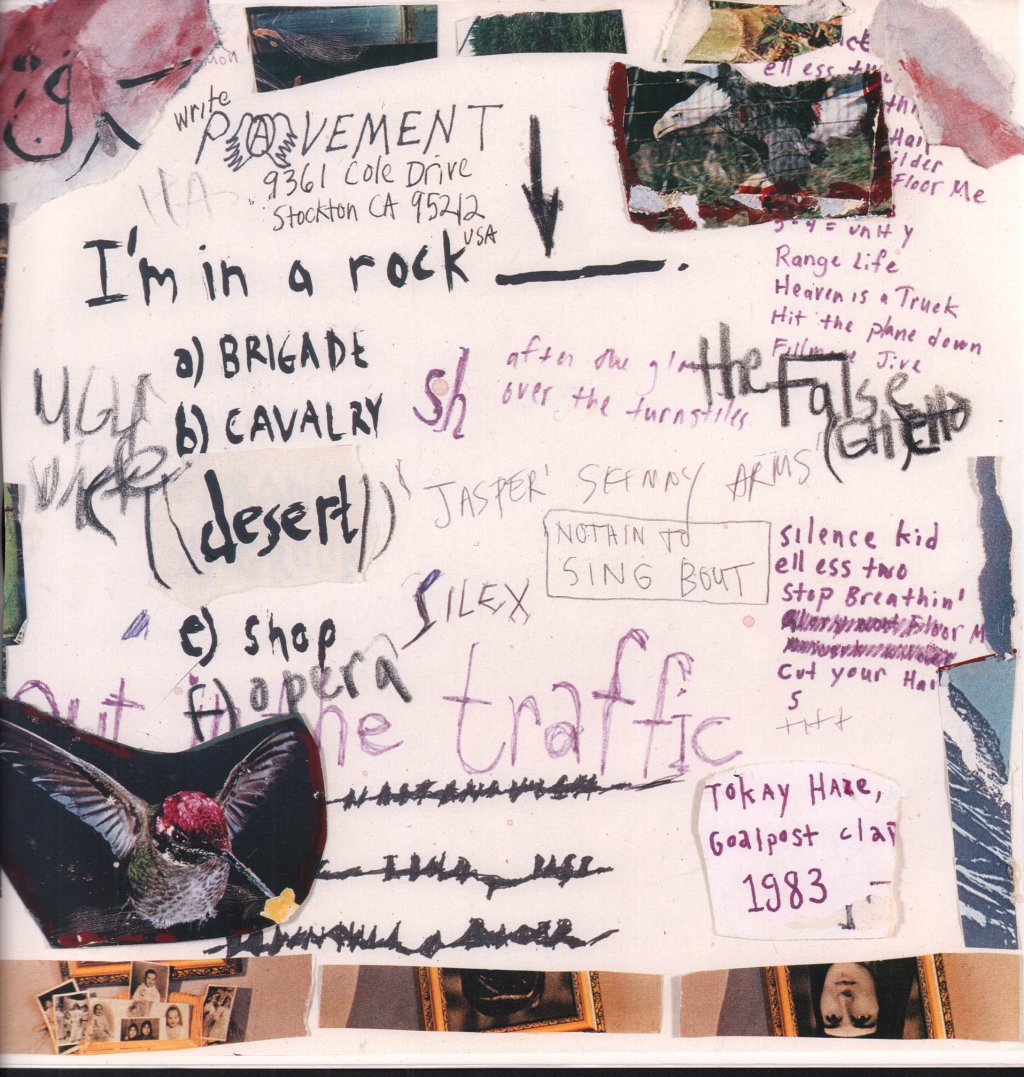 write
PAVEMENT
9361 Cole Drive
Stockton CA 95212
USA
I'm in a rock ______.
a) BRIGADE
b) CAVALRY
(((desert)))
e) shop
f) opera
UGLY
sh
after the
over the turnstiles
JASPER' SKINNY ARMS
NOTHIN TO
SING BOUT
SILEX
out in the traffic
ell ess two
Floor Me
5-4 = unity
Range Life
Heaven is a Truck
Hit the plane down
Fillmore Jive
the False
silence kid
ell ess two
Stop Breathin'
Cut your Hai
S
TOKAY HAZE,
Goalpost clai
1983